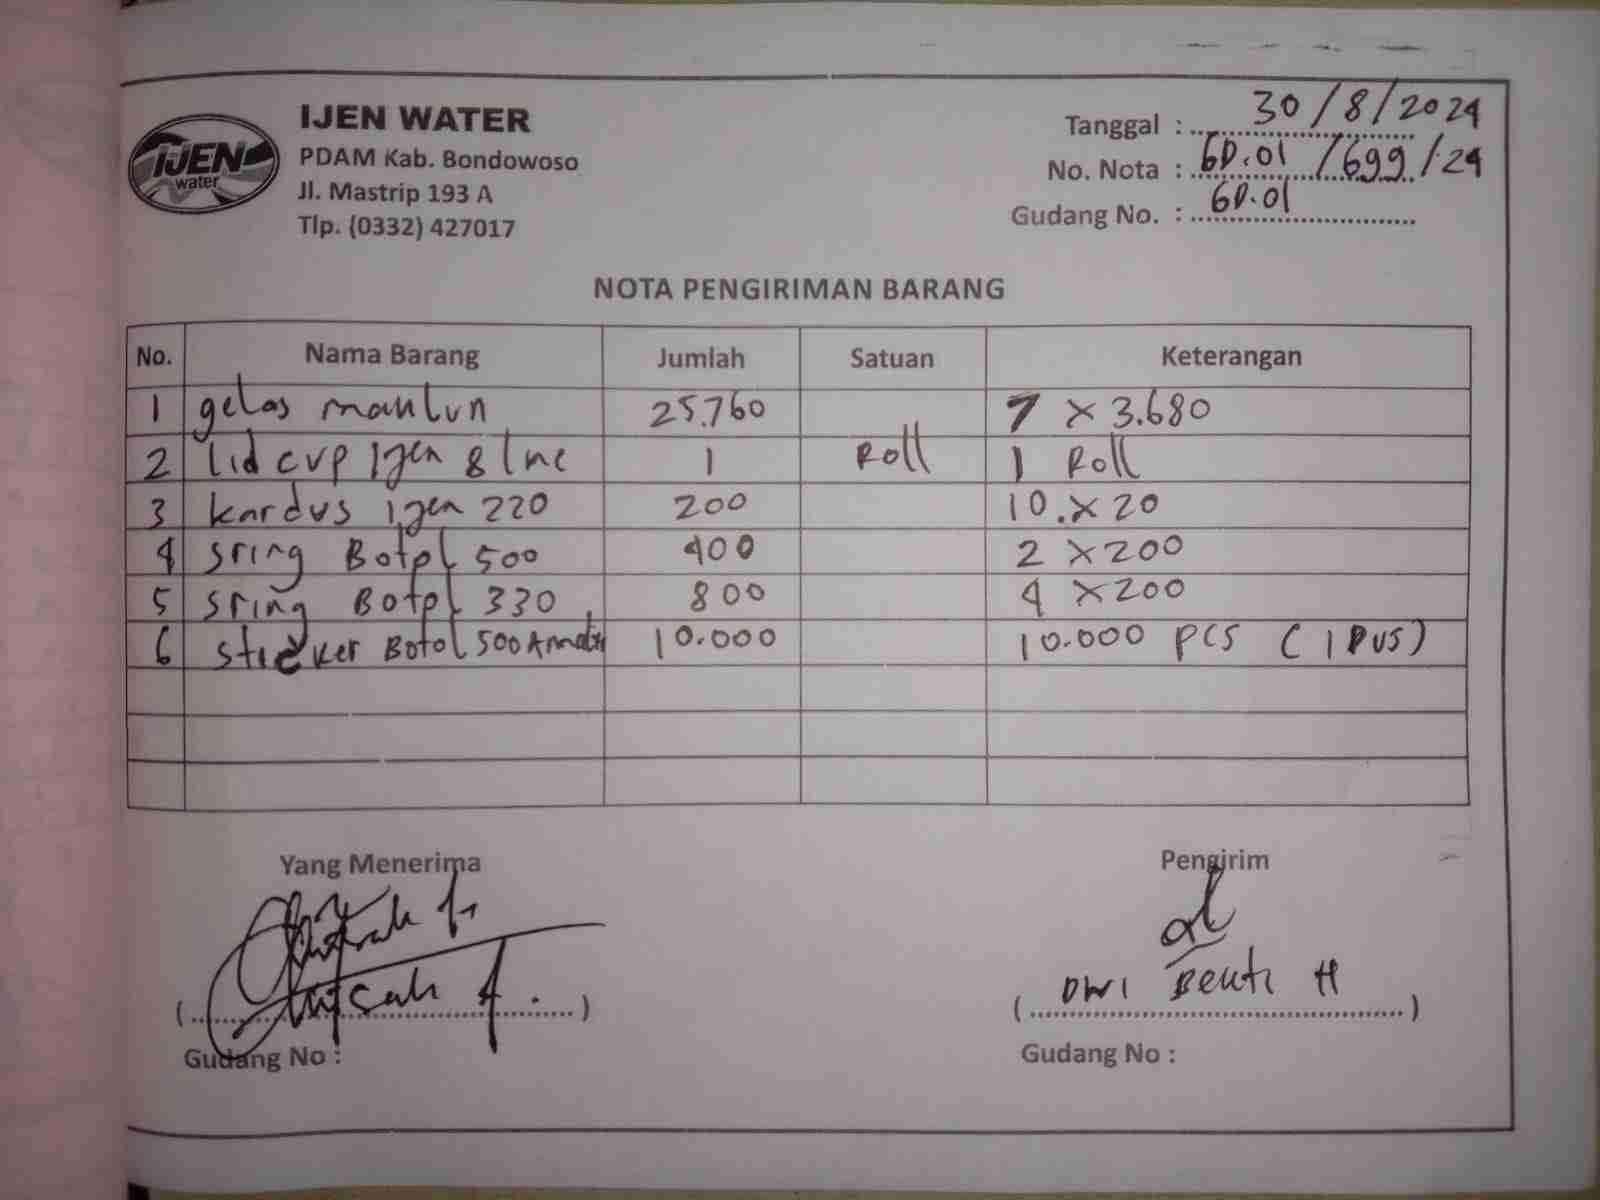 IJEN WATER
PDAM Kab. Bondowoso
Jl. Mastrip 193 A
Tlp. (0332) 427017
IJEN
water
Tanggal : 30/8/2024
No. Nota : GD.01/699/24
Gudang No. : GD.01
NOTA PENGIRIMAN BARANG
No. Nama Barang Jumlah Satuan Keterangan
1 gelas 25.760 7 x 3.680
2 lid cup Ijen 8 line 1 Roll 1 Roll
3 kardus Ijen 220 200 10 . x 20
4 sring Botol 500 400 2 x 200
5 sring Botol 330 800 4 x 200
6 sticker Botol 500 10.000 10.000 pcs (1 DUS)
Yang Menerima Pengirim
Dwi H
Gudang No : Gudang No :